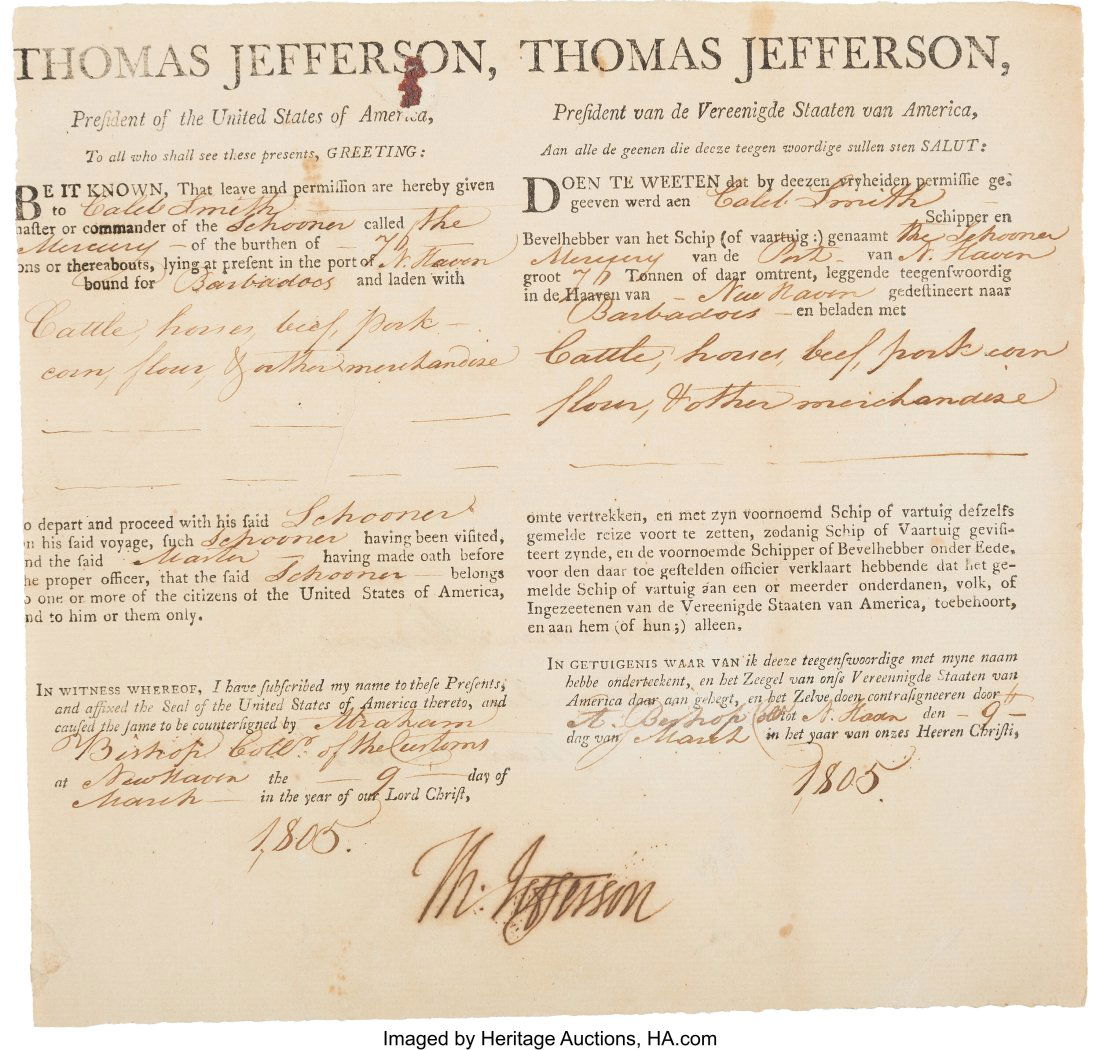 THOMAS JEFFERSON,
President of the United States of America,
To all who shall see these presents, GREETING:
BE IT KNOWN, That leave and permission are hereby given
to Caleb Smith
naster or commander of the Schooner called the
Mercury - of the burthen of - 70
ons or thereabouts, lying at present in the port of N. Haven
bound for Barbadoes and laden with
Cattle, horses, beef, pork -
corn, flour, & other merchandise
o depart and proceed with his said Schooner
n his said voyage, such Schooner having been visited,
nd the said Master having made oath before
he proper officer, that the said Schooner - belongs
o one or more of the citizens of the United States of America,
nd to him or them only.
IN WITNESS WHEREOF, I have subscribed my name to these Presents,
and affixed the Seal of the United States of America thereto, and
caused the same to be countersigned by Abraham
Bishop Collr. of the Customs
at New Haven the - 9 - day of
March - in the year of our Lord Christ,
1805.
THOMAS JEFFERSON,
President van de Vereenigde Staaten van America,
Aan alle de geenen die deeze teegen woordige sullen sien SALUT:
DOEN TE WEETEN dat by deezen vryheiden permissie ge-
geeven werd aen Caleb Smith -
Schipper en
Bevelhebber van het Schip (of vaartuig:) genaamt the Schooner
Mercury van de Port - van N. Haven
groot 70 Tonnen of daar omtrent, leggende teegenswoordig
in de Haaven van - New Haven gedestineert naar
Barbadois - en beladen met
Cattle, horses, beef, pork corn
flour, & other merchandise
omte vertrekken, en met zyn voornoemd Schip of vartuig deszelfs
gemelde reize voort te zetten, zodanig Schip of Vaartuig gevisi-
teert zynde, en de voornoemde Schipper of Bevelhebber onder Eede,
voor den daar toe gestelden officier verklaart hebbende dat het ge-
melde Schip of vartuig aan een or meerder onderdanen, volk, of
Ingezeetenen van de Vereenigde Staten van America, toebehoort,
en aan hem (of hun;) alleen.
IN GETUIGENIS WAAR VAN ik deeze teegenswoordige met myne naam
hebbe onderteekent, en het Zeegel van onse Vereennigde Staten van
America daar aan gehegt, en het Zelve doen contrasigneeren door
A. Bishop tot N. Haan den - 9 -
dag van March in het yaar van onzes Heeren Christi,
1805.
Th. Jefferson
Imaged by Heritage Auctions, HA.com